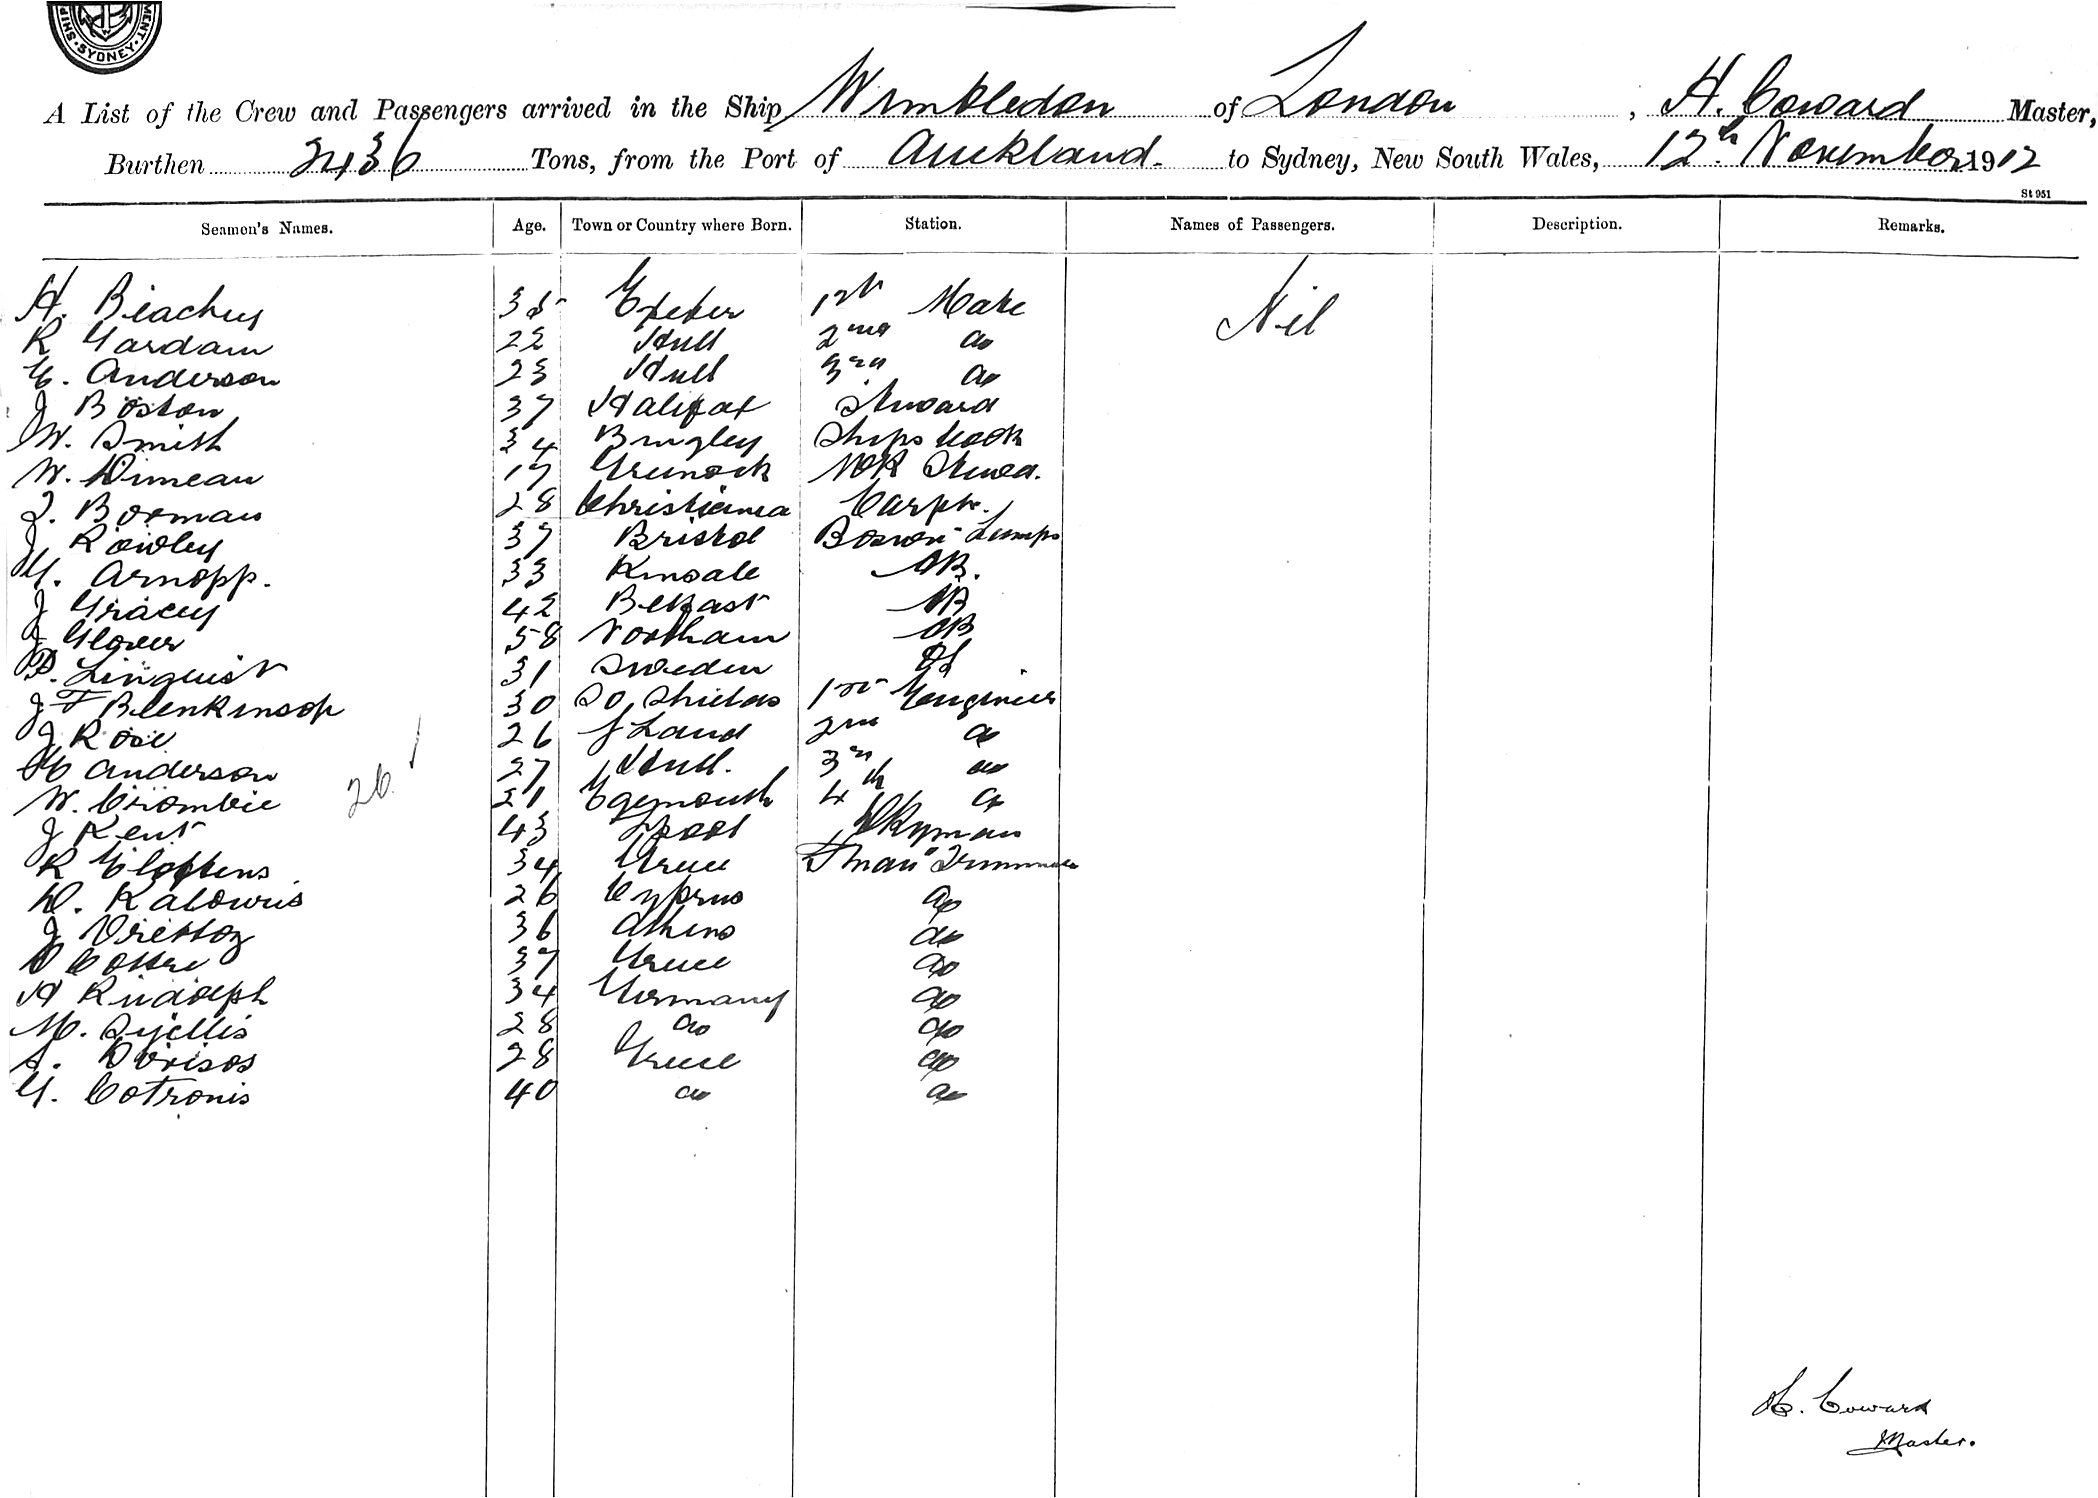 SYDNEY
A List of the Crew and Passengers arrived in the Ship Wimbledon of London, H. Coward Master,
Burthen 2436 Tons, from the Port of Auckland. to Sydney, New South Wales, 12th November 1912
St 951
Seamen's Names. Age. Town or Country where Born. Station. Names of Passengers. Description. Remarks.
H. Beachey 35 Exeter 1st Mate Nil
R Gardam 22 Hull 2nd do
E. Anderson 23 Hull 3rd do
J Boston 37 Halifax Steward
W. Smith 34 Bingley Ships Cook
W. 17 Greenock
Borman 28 Christiania Carptr.
J Rowley 37 Bristol Bosun Lamps
G. Arnopp. 33 Kinsale AB.
J Gracey 42 Belfast AB
J Glover 58 Northam AB
P. Linquist 31 Sweden
J F Blenkinsop 30 So Shields 1st Engineer
J Rose 26 2nd do
H Anderson 27 Hull. 3rd do
26
W. Crombie 21 Eyemouth 4th do
J Kent 43 L'pool Dkyman
R 34 Greece F'man & Trimmer
D. Kalowris 26 Cyprus do
J 36 Athens do
37 Greece do
H Rudolph 34 Germany do
M. 28 do do
28 Greece do
G. Cotronis 40 do do
H. Coward
Master.